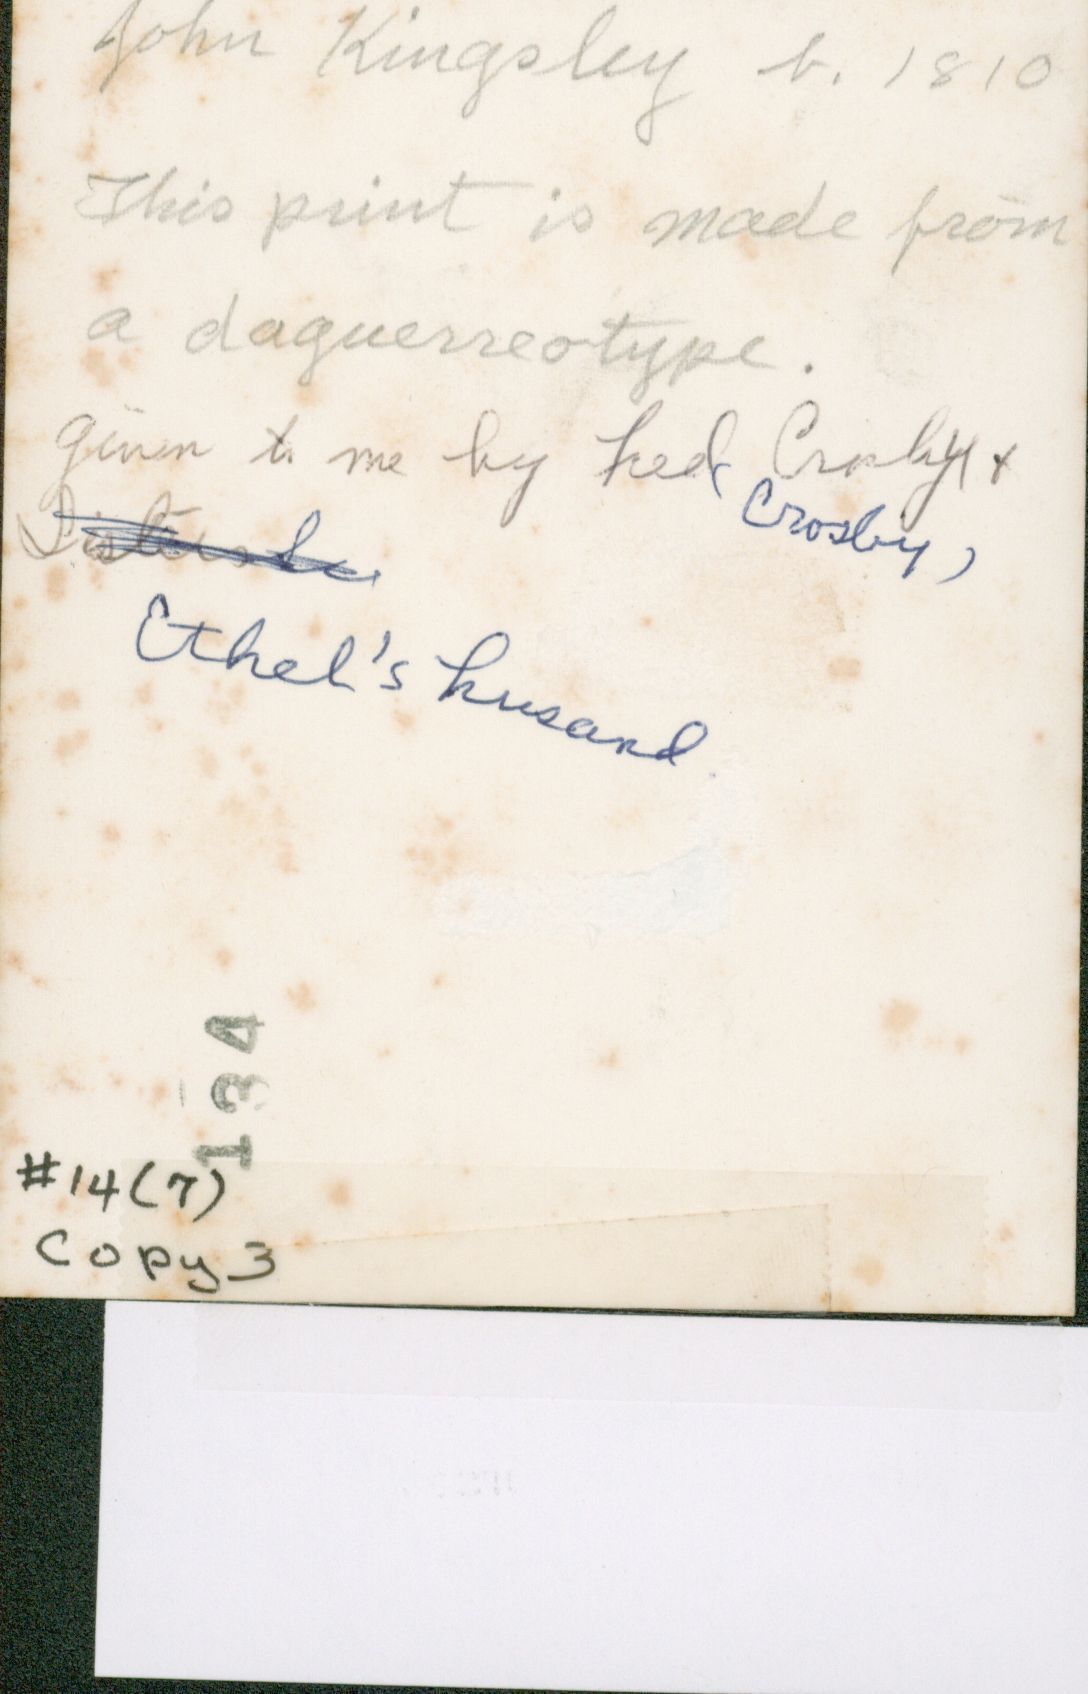 John Kingsley b. 1810
This print is made from
a daguerreotype.
given to me by Crosby
Crosby,
Ethel's husand
134
#14(7)
Copy 3